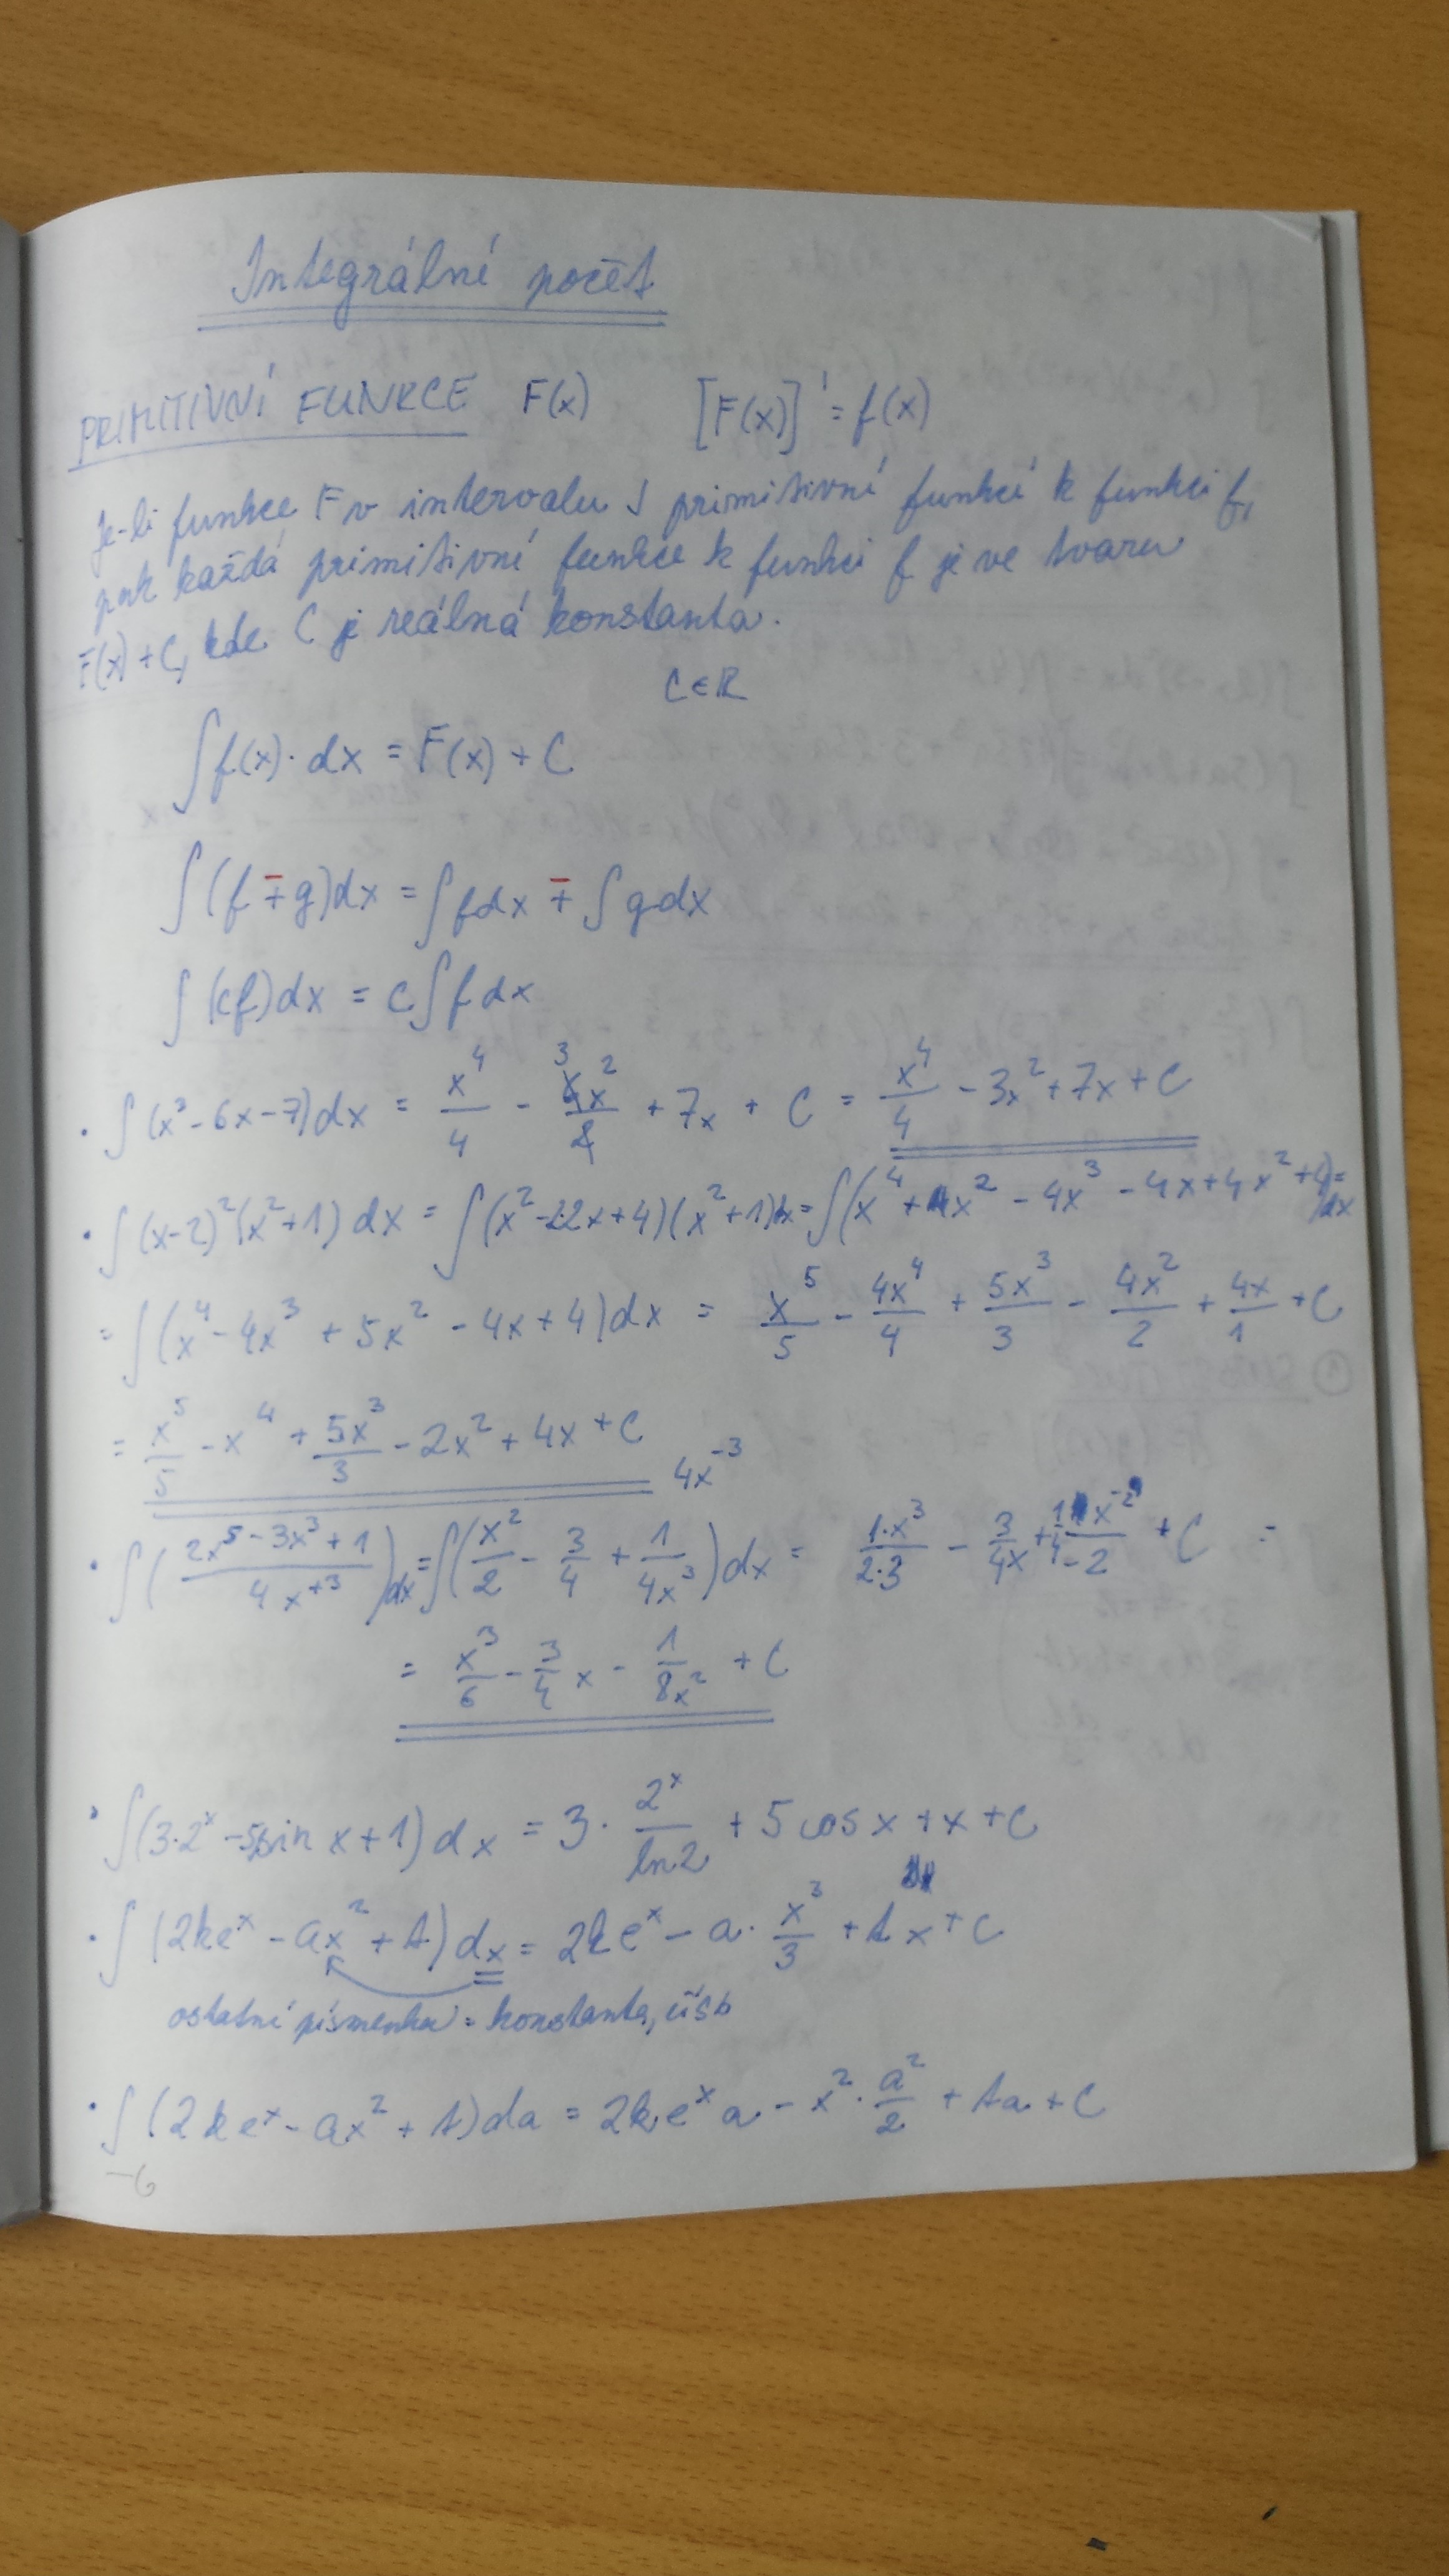 Integrální počet
PRIMITIVNÍ FUNKCE F(x) [F(x)]' = f(x)
Je-li funkce F v intervalu J primitivní funkcí k funkci f,
pak každá primitivní funkce k funkci f je ve tvaru
F(x) + C, kde C je reálná konstanta.
C ∈ R
∫f(x)· dx = F(x) + C
∫(f ∓ g)dx = ∫fdx ∓ ∫gdx
∫(cf)dx = c∫fdx
· ∫(x³ - 6x - 7)dx = x⁴/4 - 6x²/2 + 7x + C = x⁴/4 - 3x² + 7x + C
· ∫(x-2)²(x²+1) dx = ∫(x² - 2·2x + 4)(x² + 1)dx = ∫(x⁴ + 1x² - 4x³ - 4x + 4x² + 4)dx =
= ∫(x⁴ - 4x³ + 5x² - 4x + 4)dx = x⁵/5 - 4x⁴/4 + 5x³/3 - 4x²/2 + 4x/1 + C
= x⁵/5 - x⁴ + 5x³/3 - 2x² + 4x + C
4x⁻³
· ∫((2x⁵ - 3x³ + 1)/4x⁺³)dx = ∫(x²/2 - 3/4 + 1/4x³)dx = 1·x³/2·3 - 3/4x + 1/4 x⁻²/-2 + C =
= x³/6 - 3/4 x - 1/8x² + C
· ∫(3·2ˣ - 5sin x + 1) dx = 3 · 2ˣ/ln2 + 5 cos x + x + C
· ∫(2keˣ - ax² + t) dx = 2keˣ - a · x³/3 + t x + C
ostatní písmenka = konstanta, číslo
· ∫(2keˣ - ax² + t)da = 2keˣ a - x² · a²/2 + ta + C
-6